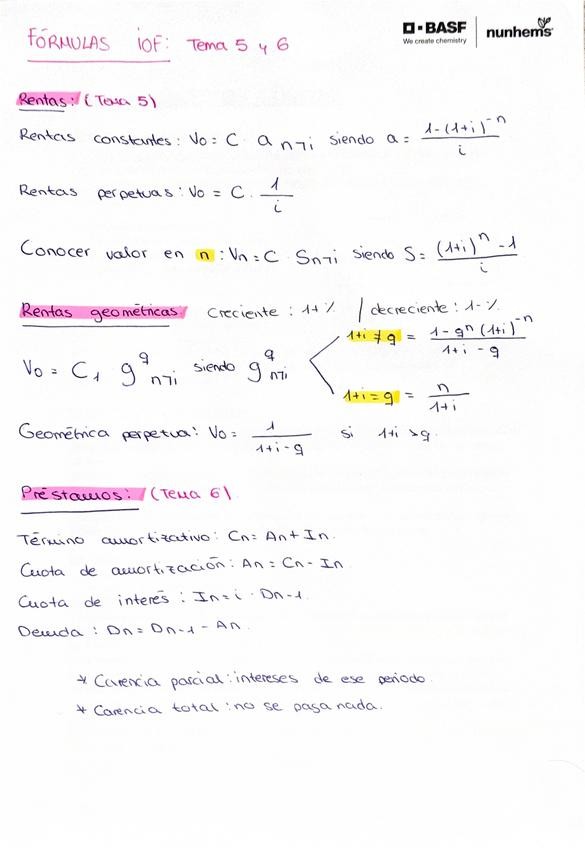 FÓRMULAS iOF: Tema 5 y 6
BASF
We create chemistry
nunhems
Rentas: (Tema 5)
Rentas constantes: Vo = C · a n¬i siendo a = 1-(1+i)^-n / i
Rentas perpetuas: Vo = C · 1 / i
Conocer valor en n : Vn = C Sn¬i siendo S = (1+i)^n - 1 / i
Rentas geométricas: Creciente : 1+% / decreciente : 1-%
Vo = C1 g^q n¬i siendo g^q n¬i
1+i ≠ q = 1 - q^n (1+i)^-n / 1+i - q
1+i = q = n / 1+i
Geométrica perpetua: Vo = 1 / 1+i-q si 1+i > q.
Préstamos: (Tema 6)
Término amortizativo: Cn = An + In.
Cuota de amortización: An = Cn - In
Cuota de interés : In = i · Dn-1.
Deuda : Dn = Dn-1 - An.
* Carencia parcial: intereses de ese periodo.
* Carencia total: no se paga nada.